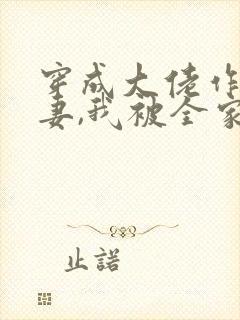 穿成大佬作
妻,我被全家
止諾